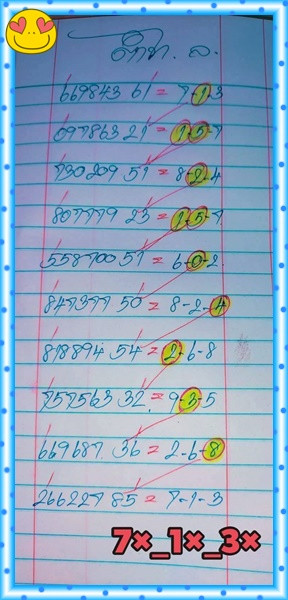 669843 61 = 7-1-3
097863 21 = 1-5-7
730209 51 = 8-2-4
807779 23 = 1-5-7
558700 51 = 6-0-2
847377 50 = 8-2-4
818894 54 = 2-6-8
757563 32 = 9-3-5
669687 36 = 2-6-8
266227 85 = 7-1-3
7×_1×_3×